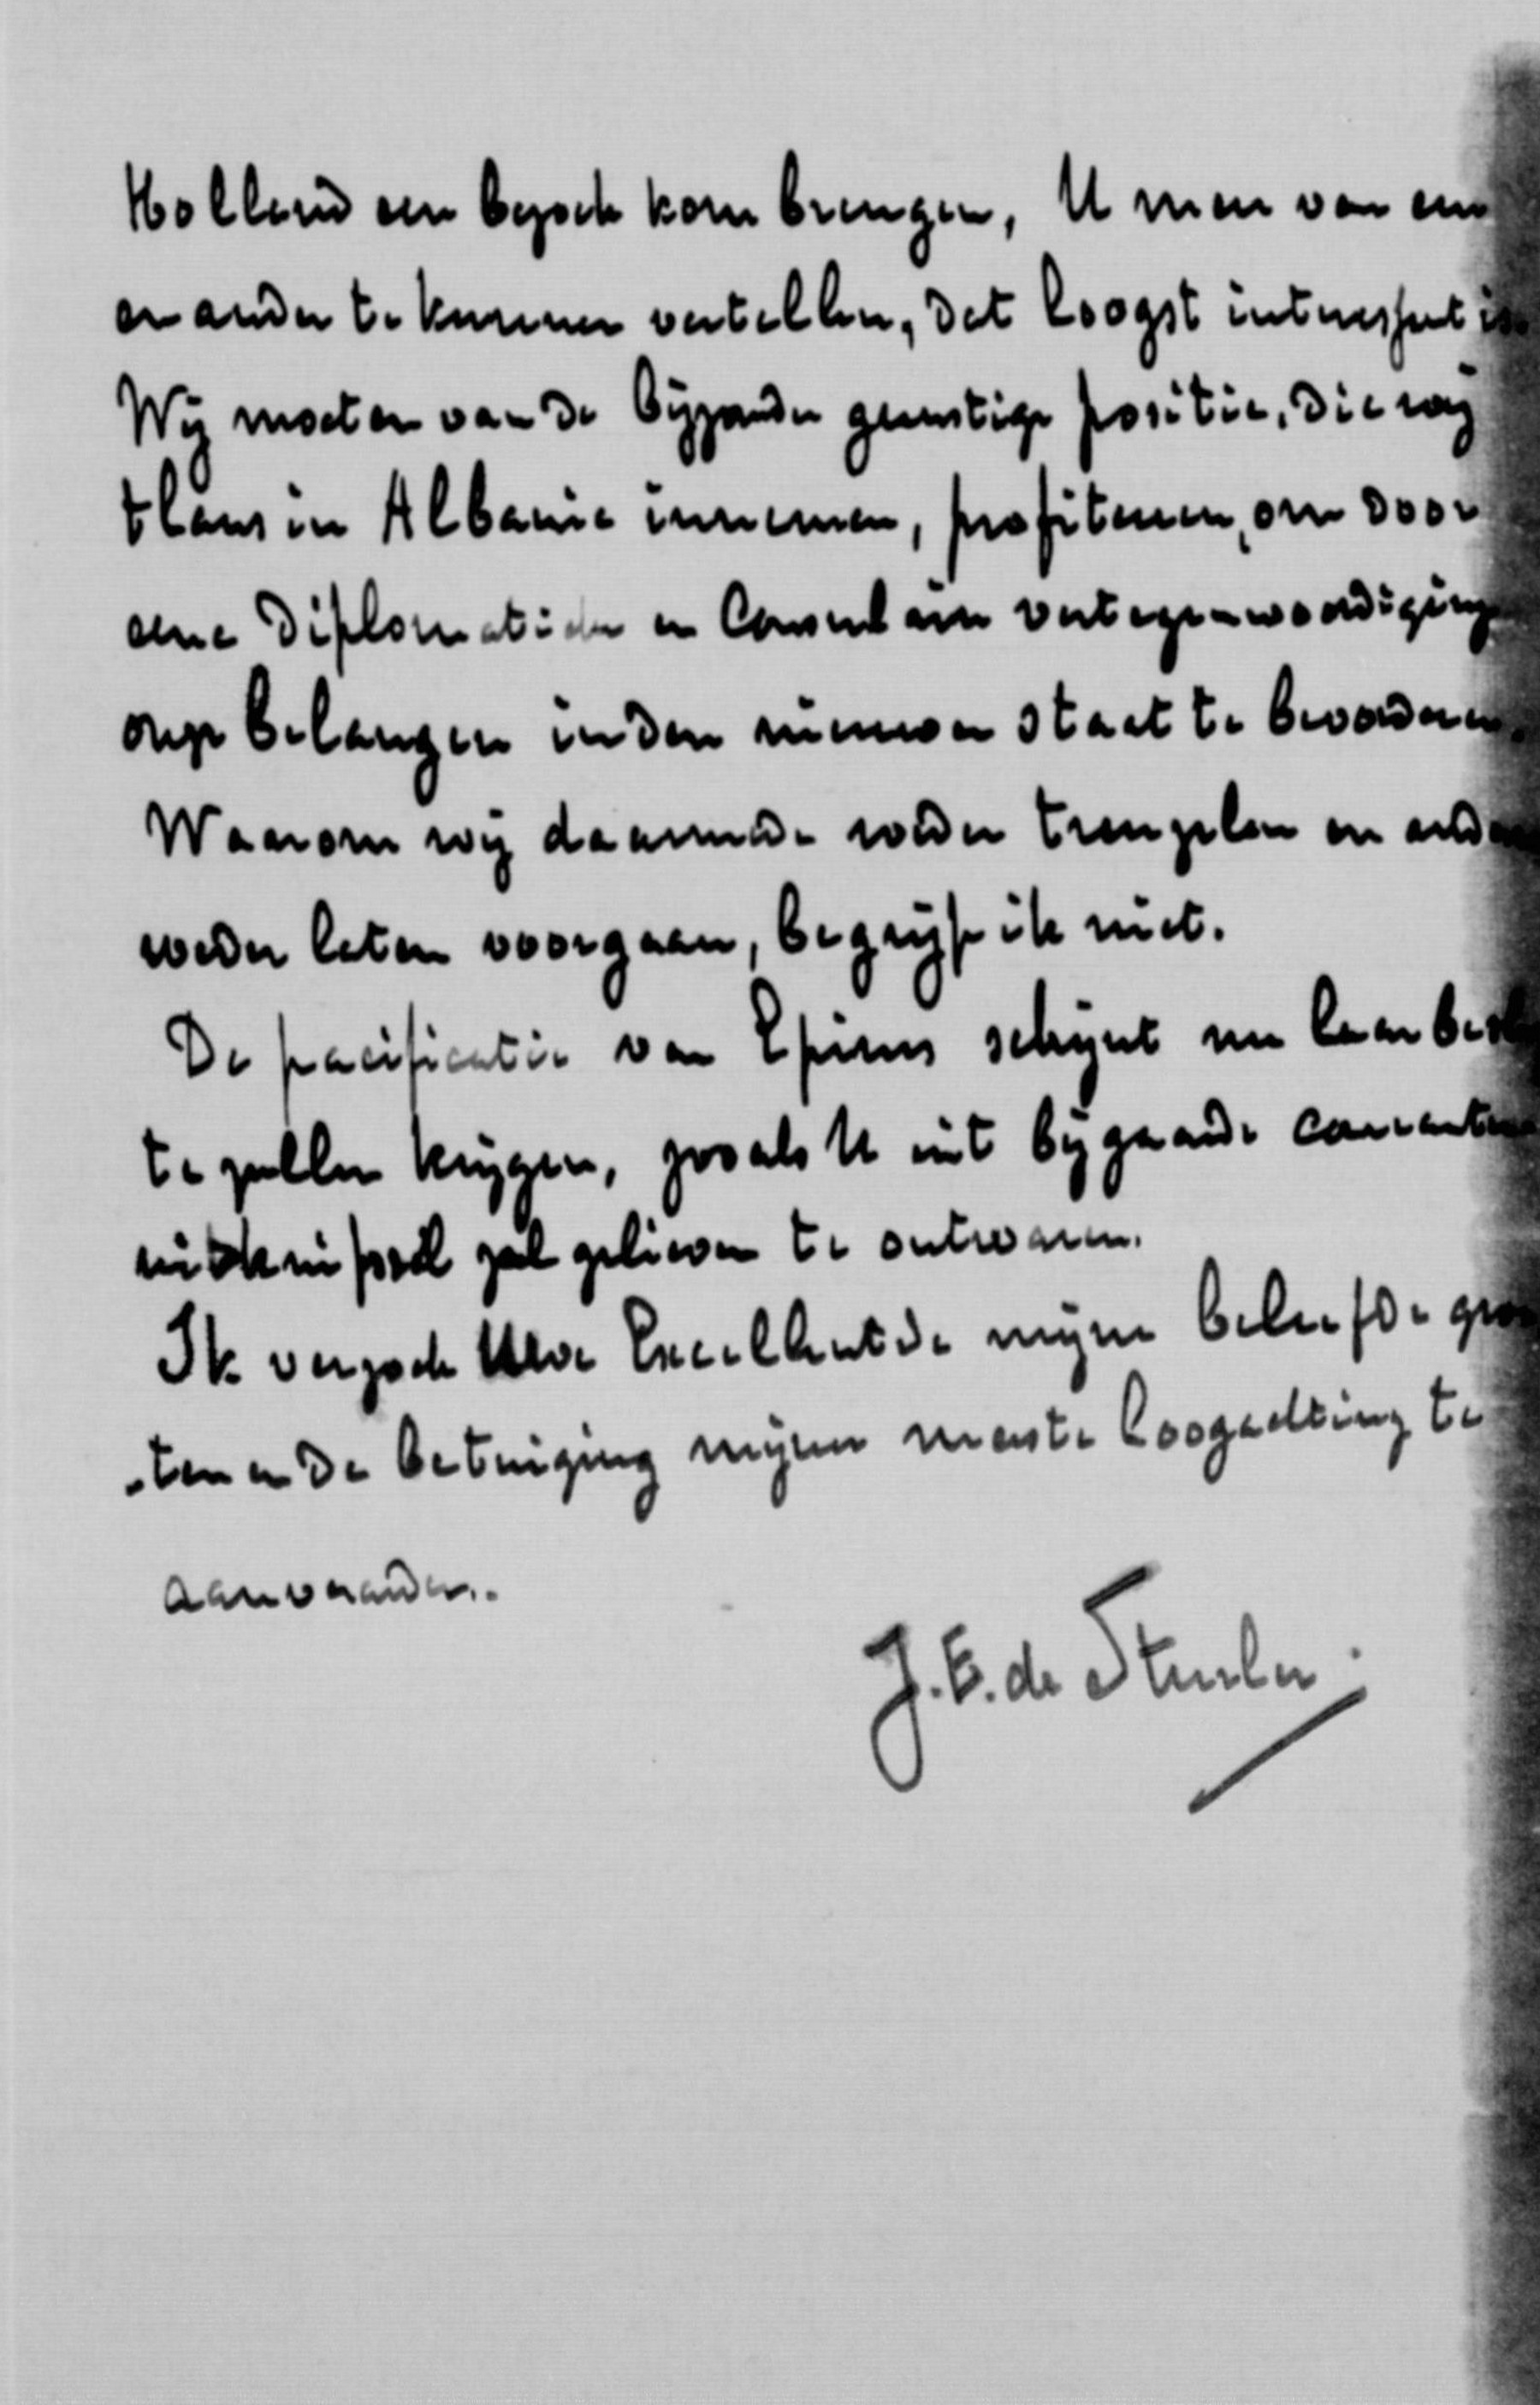 Holland een bezoek kom brengen, U meen van een
en ander te kunnen vertellen, dat hoogst interessant is.
Wij moeten van de bijzonder gunstige positie, die wij
thans in Albanie innemen, profiteeren, om door
eene diplomatieke en Consulaire vertegenwoordiging
onze belangen in den nieuwen staat te bevorderen.
Waarom wij daarmede weder treuzelen en andere
weder laten voorgaan, begrijp ik niet.
De pacificatie van Epirus schijnt nu haar besl
te zullen krijgen, zooals U uit bijgaande couranten
uitknipsel zal gelieven te ontwaren.
Ik verzoek Uwe Excellentie de mijne beleefde groe
-ten en de betuiging mijner meeste hoogachting te
aanvaarden.
J. E. de Sturler.